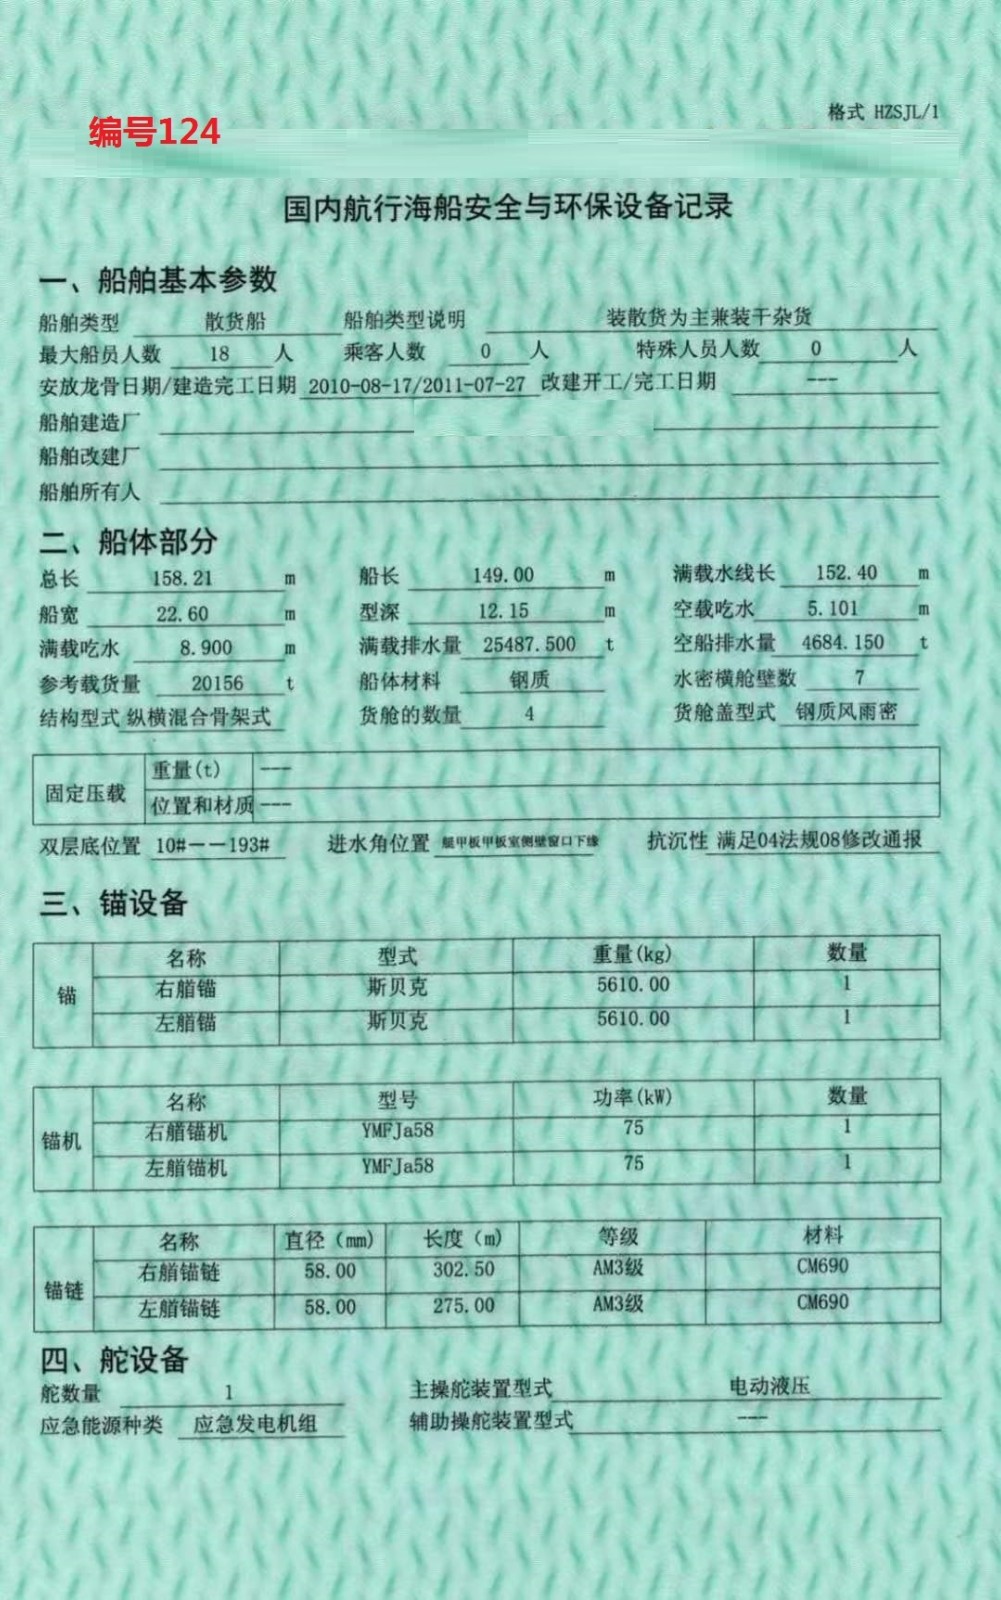 格式 HZSJL/1
编号124
国内航行海船安全与环保设备记录
一、船舶基本参数
船舶类型 散货船 船舶类型说明 装散货为主兼装干杂货
最大船员人数 18 人 乘客人数 0 人 特殊人员人数 0 人
安放龙骨日期/建造完工日期 2010-08-17/2011-07-27 改建开工/完工日期 ---
船舶建造厂
船舶改建厂
船舶所有人
二、船体部分
总长 158.21 m 船长 149.00 m 满载水线长 152.40 m
船宽 22.60 m 型深 12.15 m 空载吃水 5.101 m
满载吃水 8.900 m 满载排水量 25487.500 t 空船排水量 4684.150 t
参考载货量 20156 t 船体材料 钢质 水密横舱壁数 7
结构型式 纵横混合骨架式 货舱的数量 4 货舱盖型式 钢质风雨密
固定压载 重量(t) ---
位置和材质 ---
双层底位置 10#--193# 进水角位置 艇甲板甲板室侧壁窗口下缘 抗沉性 满足04法规08修改通报
三、锚设备
锚 名称 型式 重量(kg) 数量
右艏锚 斯贝克 5610.00 1
左艏锚 斯贝克 5610.00 1
锚机 名称 型号 功率(kW) 数量
右艏锚机 YMFJa58 75 1
左艏锚机 YMFJa58 75 1
锚链 名称 直径（mm） 长度（m） 等级 材料
右艏锚链 58.00 302.50 AM3级 CM690
左艏锚链 58.00 275.00 AM3级 CM690
四、舵设备
舵数量 1 主操舵装置型式 电动液压
应急能源种类 应急发电机组 辅助操舵装置型式 ---